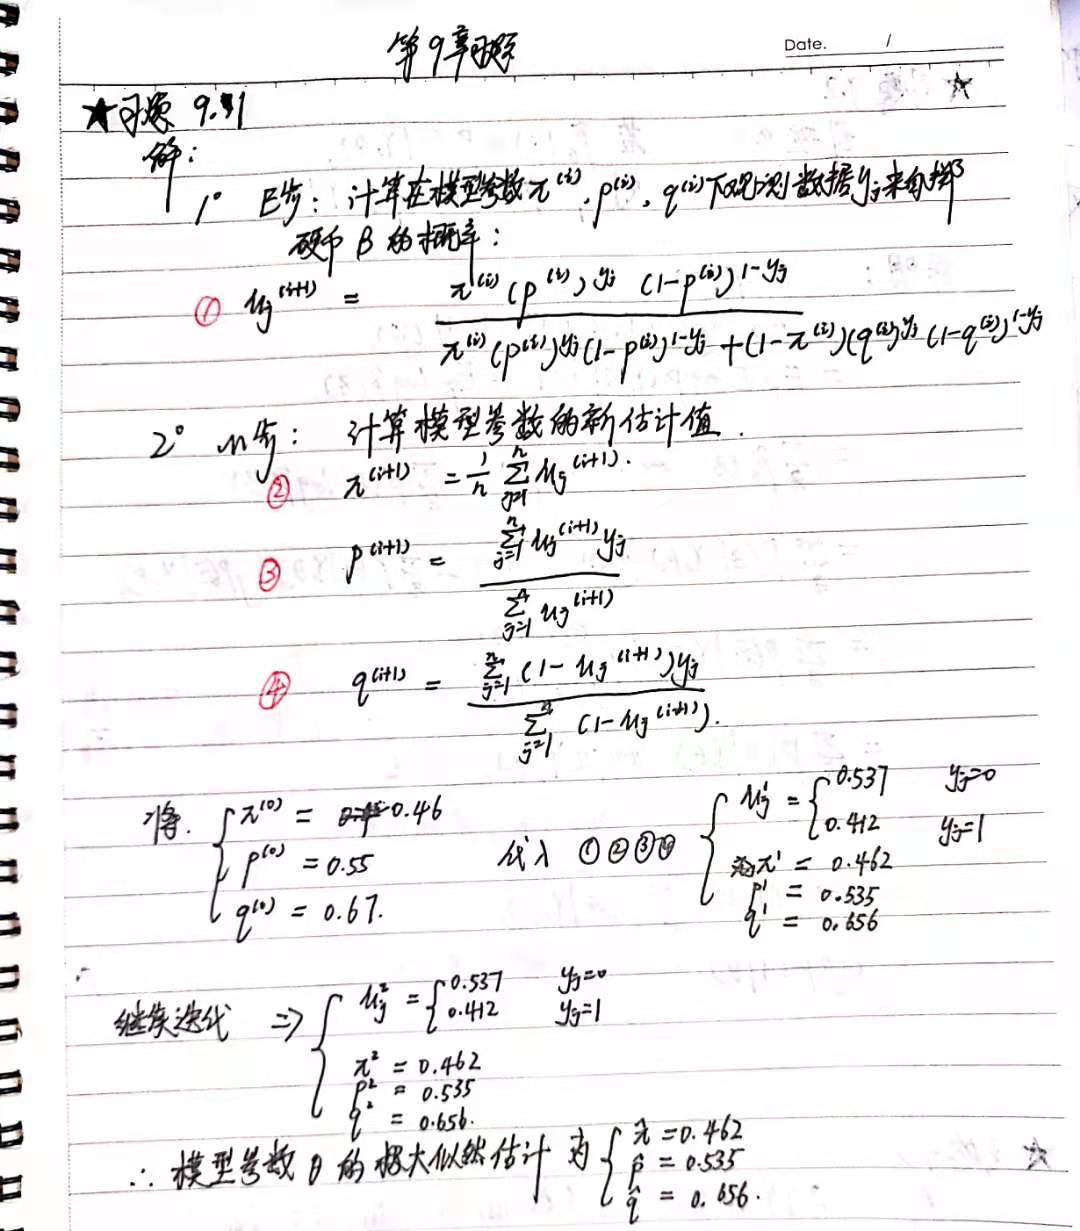 第9章习题
Date. /
★习题 9.1
解：
1° E步：计算在模型参数π^(i), p^(i), q^(i)下观测数据yj来自掷
硬币B的概率：
① μj^(i+1) = π^(i) (p^(i))^yj (1-p^(i))^1-yj / π^(i) (p^(i))^yj (1-p^(i))^1-yj + (1-π^(i)) (q^(i))^yj (1-q^(i))^1-yj
2° M步：计算模型参数的新估计值.
② π^(i+1) = 1/n Σ_{j=1}^{n} μj^(i+1).
③ p^(i+1) = Σ_{j=1}^{n} μj^(i+1) yj / Σ_{j=1}^{n} μj^(i+1)
④ q^(i+1) = Σ_{j=1}^{n} (1-μj^(i+1)) yj / Σ_{j=1}^{n} (1-μj^(i+1)).
将. { π^(0) = 0.46
p^(0) = 0.55
q^(0) = 0.67.
代入 ①②③④
{ μj^1 = { 0.537 yj=0
0.412 yj=1
π^1 = 0.462
p^1 = 0.535
q^1 = 0.656
继续迭代 => { μj^2 = { 0.537 yj=0
0.412 yj=1
π^2 = 0.462
p^2 = 0.535
q^2 = 0.656.
∴ 模型参数θ的极大似然估计为 { π̂ = 0.462
p̂ = 0.535
q̂ = 0.656.